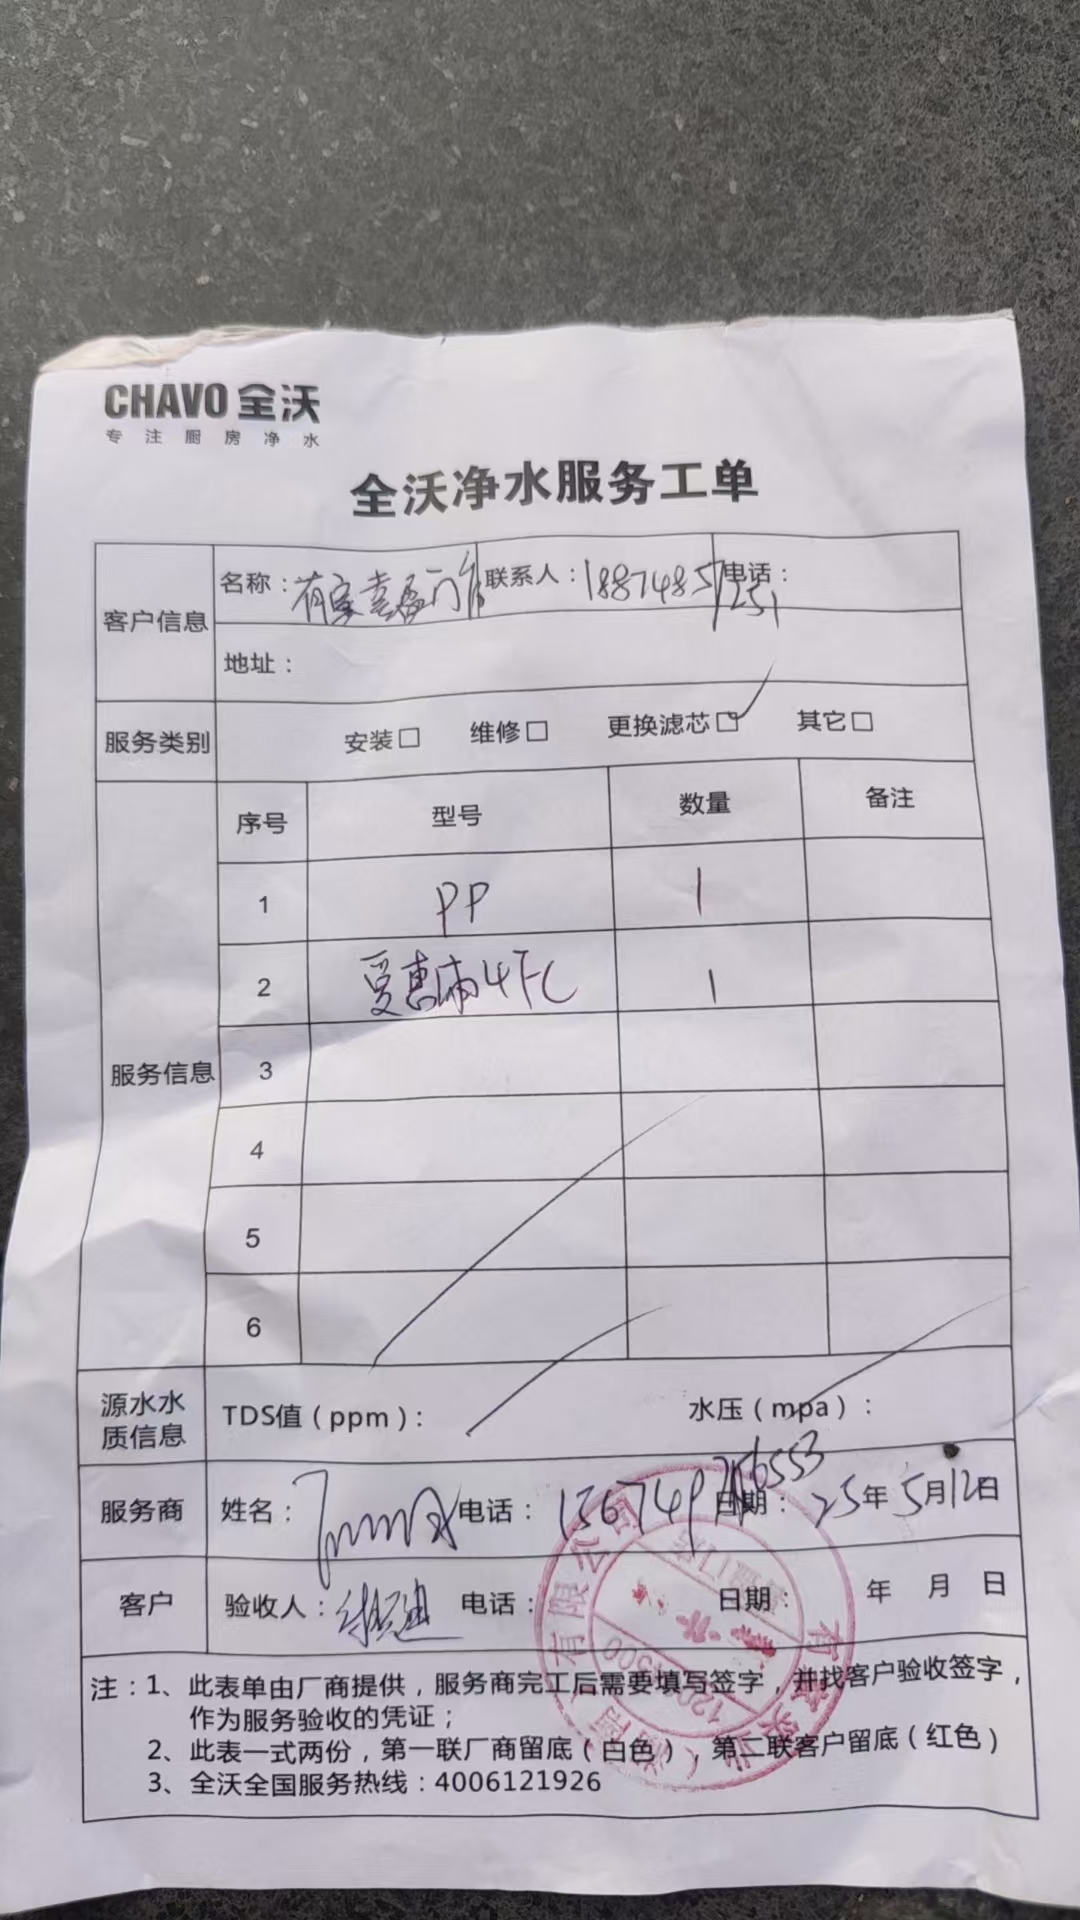 CHAVO 全沃
专注厨房净水
全沃净水服务工单
客户信息
名称：有家 门 联系人：18874857251 电话：
地址：
服务类别 安装□ 维修□ 更换滤芯□✓ 其它□
服务信息
序号 型号 数量 备注
1 PP 1
2 爱惠浦4FC 1
3
4
5
6
源水水质信息 TDS值（ppm）： 水压（mpa）：
服务商 姓名： 电话： 日期：25年5月12日
客户 验收人： 电话： 日期： 年 月 日
注：1、此表单由厂商提供，服务商完工后需要填写签字，并找客户验收签字，
作为服务验收的凭证；
2、此表一式两份，第一联厂商留底（白色），第二联客户留底（红色）
3、全沃全国服务热线：4006121926
有限公司